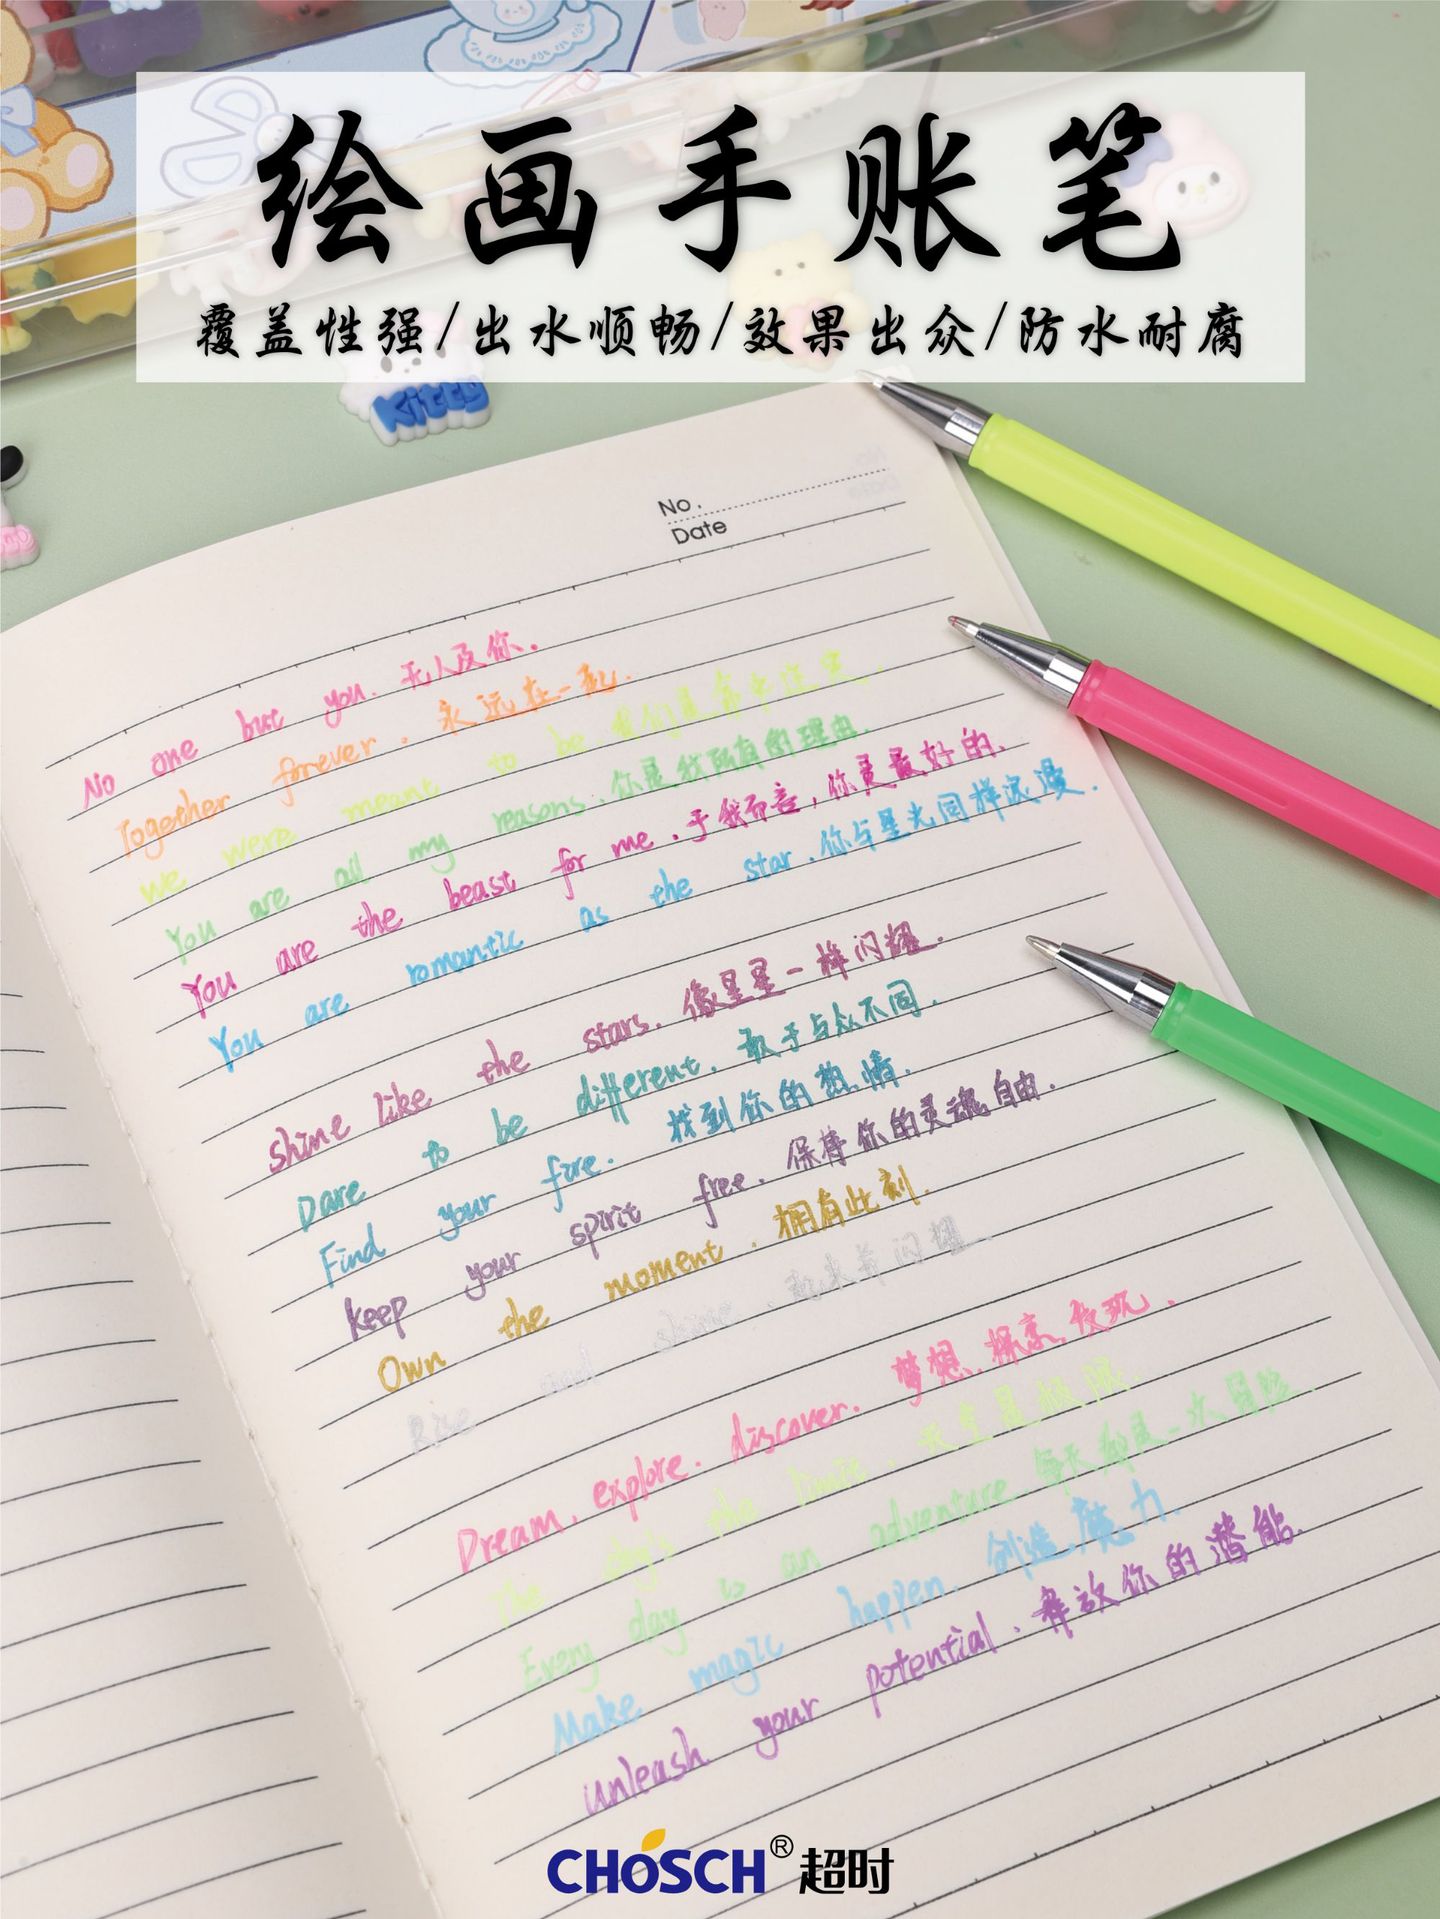 绘画手账笔
覆盖性强/出水顺畅/效果出众/防水耐腐
Kitty
No.
Date
No one but you. 无人及你.
Together forever. 永远在一起.
We were meant to be. 我们是命中注定.
You are all my reasons. 你是我所有的理由.
You are the beast for me. 于我而言,你是最好的.
You are romantic as the star. 你与星光同样浪漫.
shine like the stars. 像星星一样闪耀.
Dare to be different. 敢于与众不同.
Find your fire. 找到你的热情.
keep your spirit free. 保持你的灵魂自由.
Own the moment. 拥有此刻.
Rise and shine. 起来并闪耀.
Dream, explore. discover. 梦想、探索、发现.
The sky's the limit. 天空是极限.
Every day is an adventure. 每天都是一次冒险.
Make magic happen. 创造魔力.
unleash your potential. 释放你的潜能.
CHOSCH® 超时